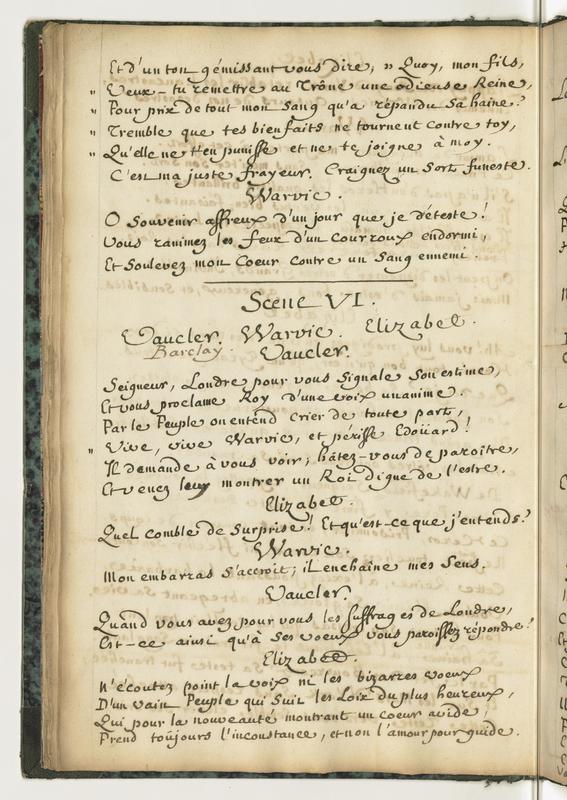 Et d'un ton gémissant vous dire; " Quoy, mon fils,
" Veux-tu remettre au Trône une odieuse Reine,
" Pour prix de tout mon Sang qu'a répandu Sa haine?
" Tremble que tes bienfaits ne tournent contre toy,
" Qu'elle ne t'en punisse et ne te joigne à moy.
C'est ma juste frayeur. Craignez un Sort funeste.
Warvic.
O Souvenir affreux d'un jour que je déteste!
Vous ranimez les feux d'un Courroux endormi,
Et Soulevez mon Coeur contre un Sang ennemi.
Scene VI.
Vaucler. Warvic. Elizabet.
Barclay. Vaucler.
Seigneur, Londre pour vous Signale Son estime,
Et vous proclame Roy d'une voix unanime.
Par le Peuple on entend crier de toute part,
" Vive, vive Warvic, et périsse Edoüard!
Il demande à vous voir; hâtez-vous de paroître,
Et venez leur montrer un Roi digne de l'estre.
Elizabet.
Quel comble de Surprise! Et qu'est-ce que j'entends?
Warvic.
Mon embarras S'accroit; il enchaine mes Sens.
Vaucler.
Quand vous avez pour vous les Suffrages de Londre,
Est-ce ainsi qu'à Ses voeux vous paroissez répondre?
Elizabet.
N'écoutez point la voix ni les bizarres voeux
D'un vain Peuple qui Suit les Loix du plus heureux,
Qui pour la nouveauté montrant un coeur avide,
Prend toûjours l'inconstance, et non l'amour pour guide.